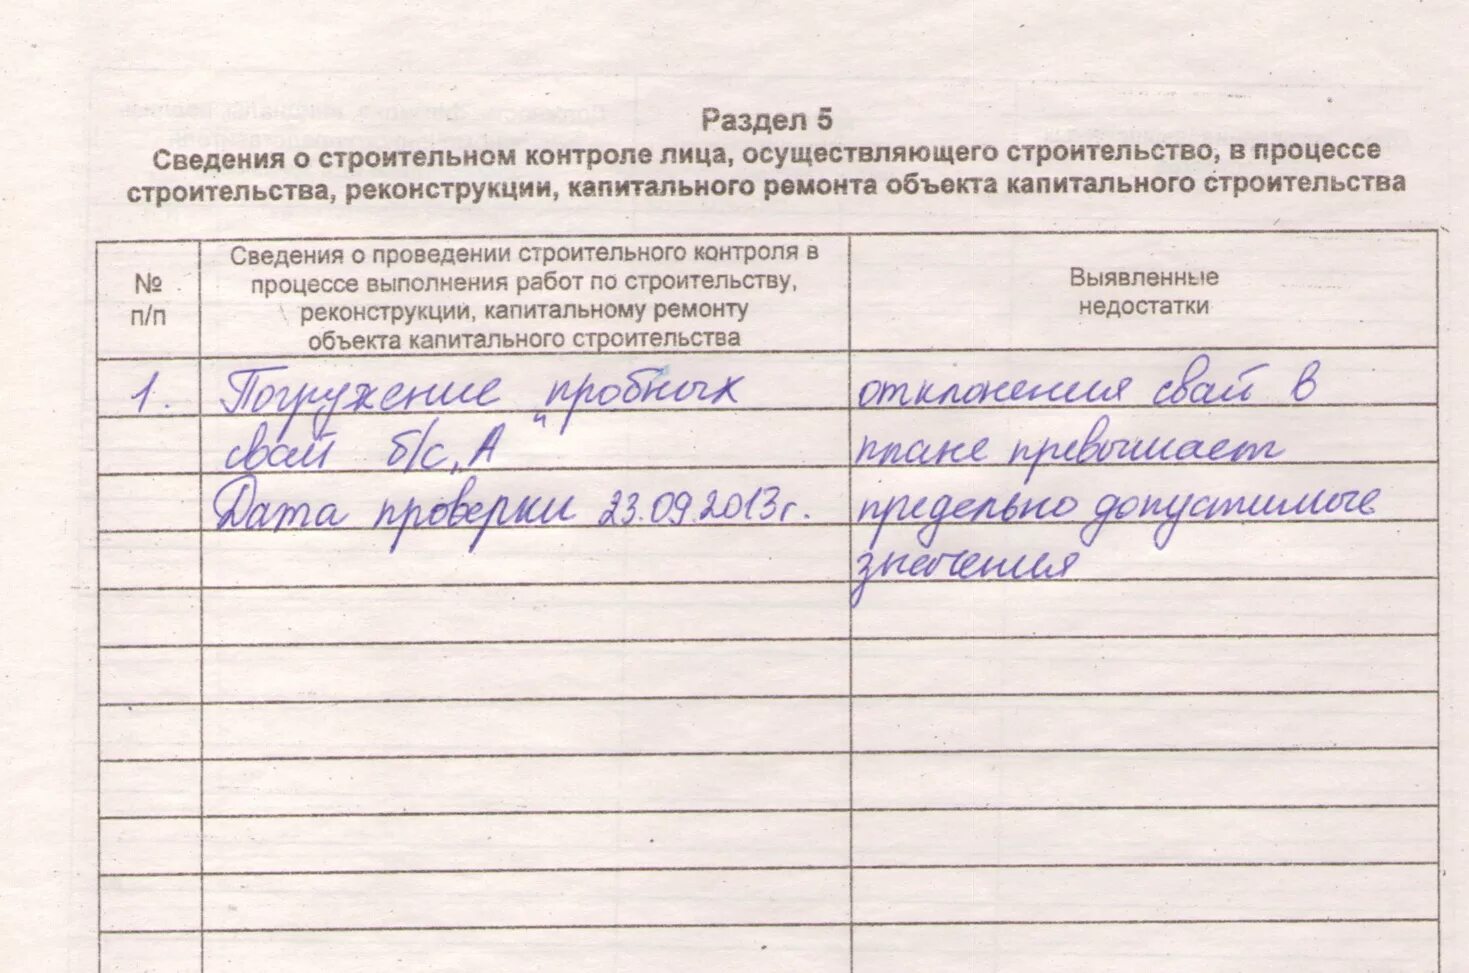 Раздел 5
Сведения о строительном контроле лица, осуществляющего строительство, в процессе
строительства, реконструкции, капитального ремонта объекта капитального строительства
№
п/п
Сведения о проведении строительного контроля в
процессе выполнения работ по строительству,
реконструкции, капитальному ремонту
объекта капитального строительства
Выявленные
недостатки
1. Погружение пробных
свай б/с „А"
Дата проверки 23.09.2013г.
отклонения свай в
плане превышает
предельно допустимые
значения